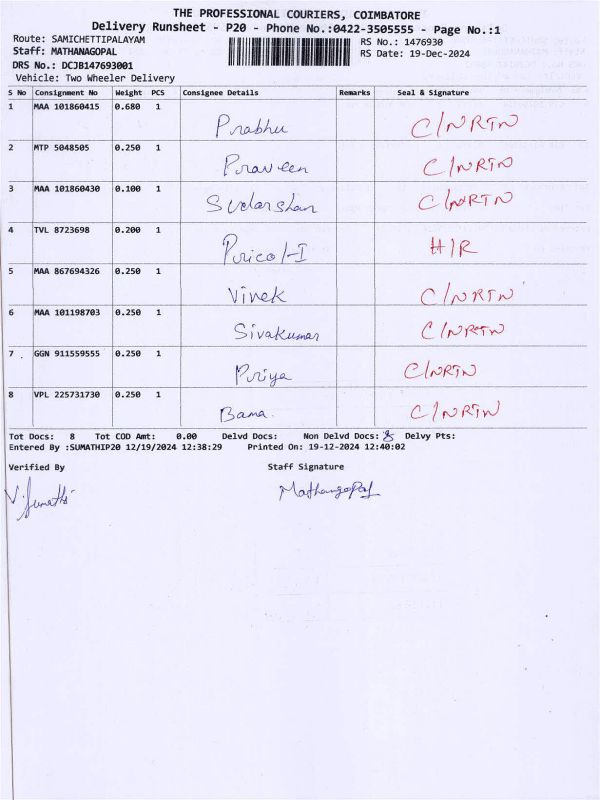 THE PROFESSIONAL COURIERS, COIMBATORE
Delivery Runsheet - P20 - Phone No.:0422-3505555 - Page No.:1
Route: SAMICHETTIPALAYAM RS No.: 1476930
Staff: MATHANAGOPAL RS Date: 19-Dec-2024
DRS No.: DCJB147693001
Vehicle: Two Wheeler Delivery
S No Consignment No Weight PCS Consignee Details Remarks Seal & Signature
1 MAA 101860415 0.680 1 Prabhu C/NRTN
2 MTP 5048505 0.250 1 Praveen C/NRTN
3 MAA 101860430 0.100 1 Sudarshan C/NRTN
4 TVL 8723698 0.200 1 H/R
5 MAA 867694326 0.250 1 Vivek C/NRTN
6 MAA 101198703 0.250 1 Sivakumar C/NRTN
7 GGN 911559555 0.250 1 Priya C/NRTN
8 VPL 225731730 0.250 1 Bama. C/NRTN
Tot Docs: 8 Tot COD Amt: 0.00 Delvd Docs: Non Delvd Docs: 8 Delvy Pts:
Entered By :SUMATHIP20 12/19/2024 12:38:29 Printed On: 19-12-2024 12:40:02
Verified By Staff Signature
V. Sumathi Mathangopal